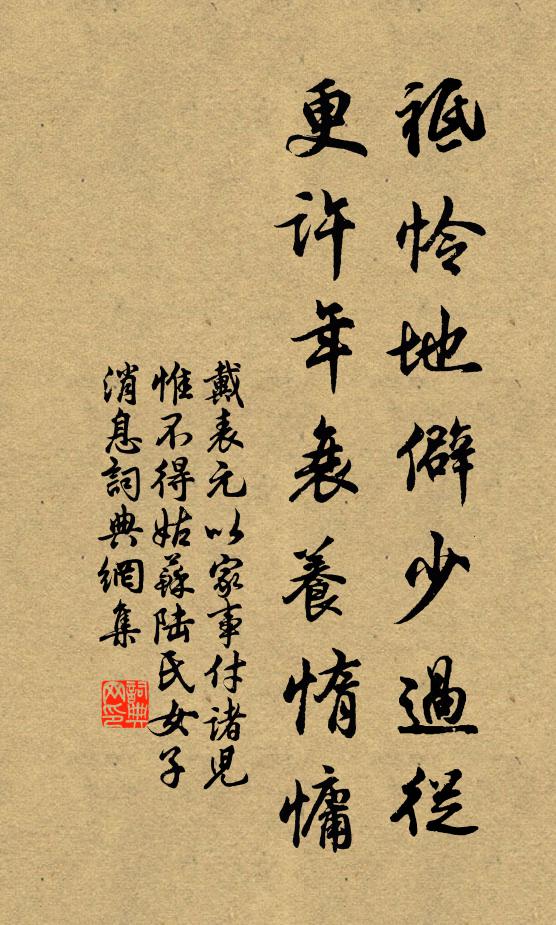 祗怜地僻少過從
更許年衰養惰慵
戴表元以家事付諸兒
惟不得姑蘇陸氏女子
消息詞典網集
詞典
网印